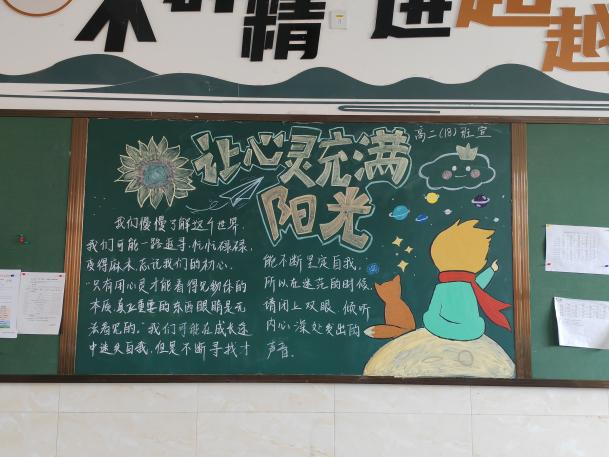 精 进 超越
让心灵充满
阳光
高二(18)班宣
我们慢慢了解这个世界,
我们可能一路追寻,忙忙碌碌,
变得麻木,忘记我们的初心,
"只有用心灵才能看得见物体的
本质,真正重要的东西眼睛是无
法看见的。"我们可能在成长途
中迷失自我,但是不断寻找才
能不断坚定自我,
所以在迷茫的时候,
请闭上双眼,倾听
内心深处发出的
声音。